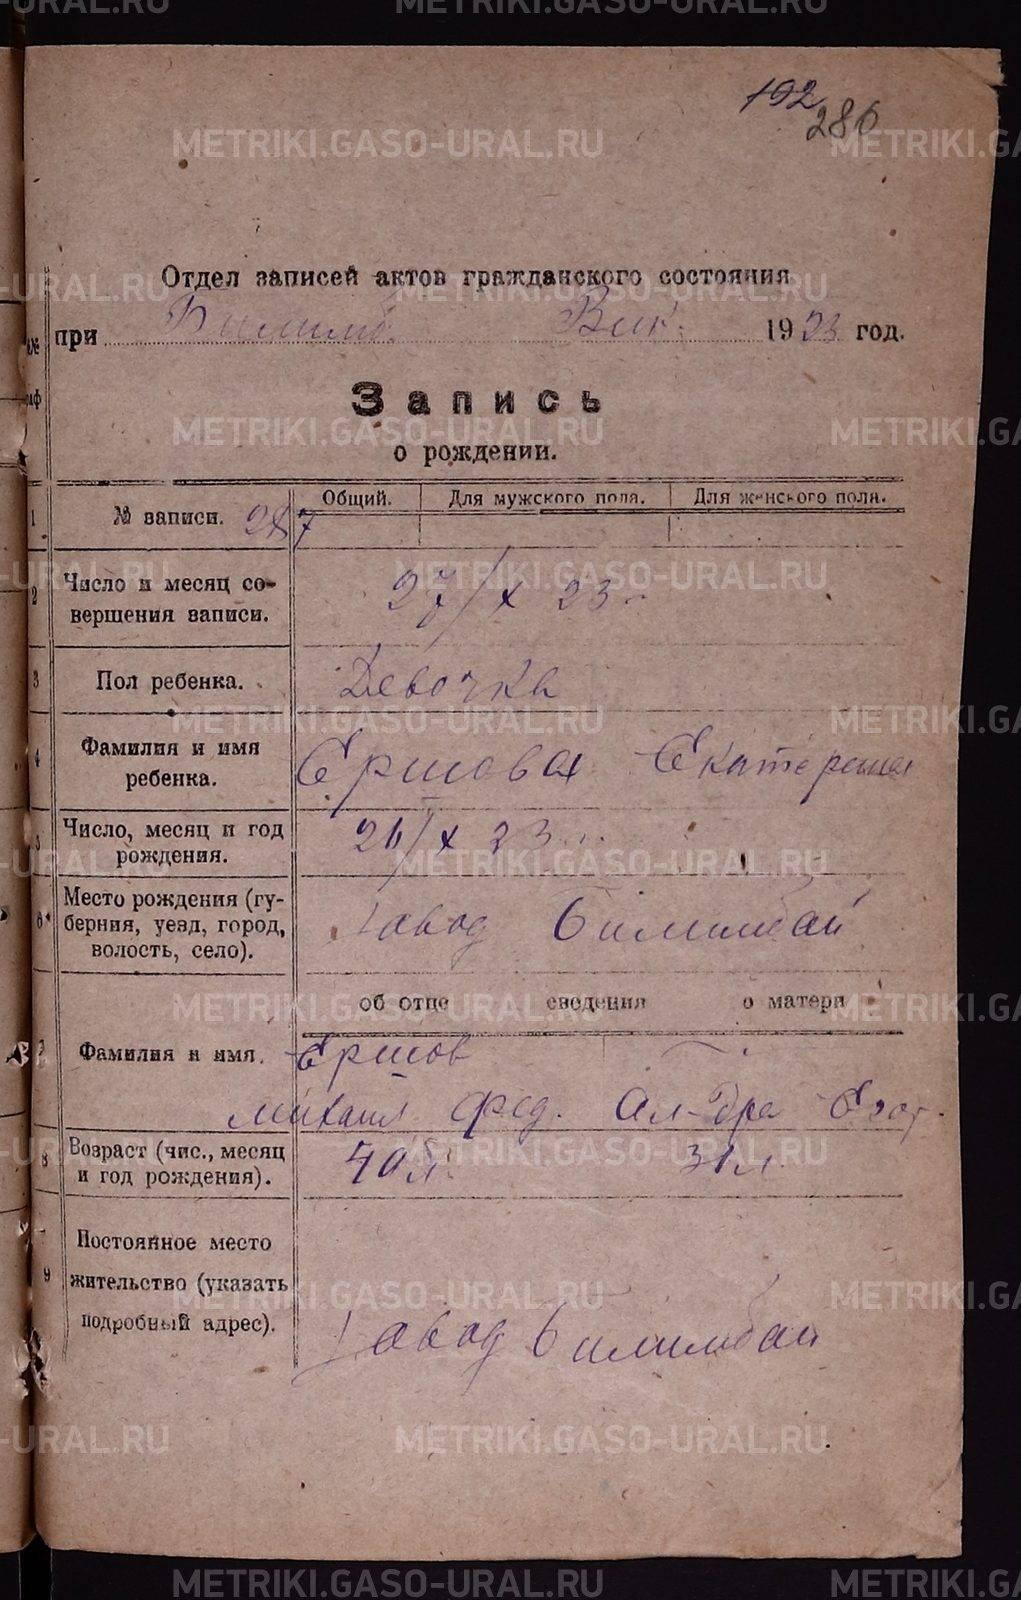 192
286
Отдел записей актов гражданского состояния
при Билимб. Вик. 1923 год.
Запись
о рождении.
Общий. Для мужского пола. Для женского пола.
1 № записи. 287
2 Число и месяц со-
вершения записи. 27/X 23
3 Пол ребенка. Девочка
4 Фамилия и имя
ребенка. Ершова Екатерина
5 Число, месяц и год
рождения. 26/X 23
6 Место рождения (гу-
берния, уезд, город,
волость, село). Завод Билимбай
об отце сведения о матери
7 Фамилия и имя. Ершов
Михаил Фед. Ал-дра Егор.
8 Возраст (чис., месяц
и год рождения). 40 л. 31 л.
9 Постоянное место
жительство (указать
подробный адрес). Завод Билимбай
METRIKI.GASO-URAL.RU